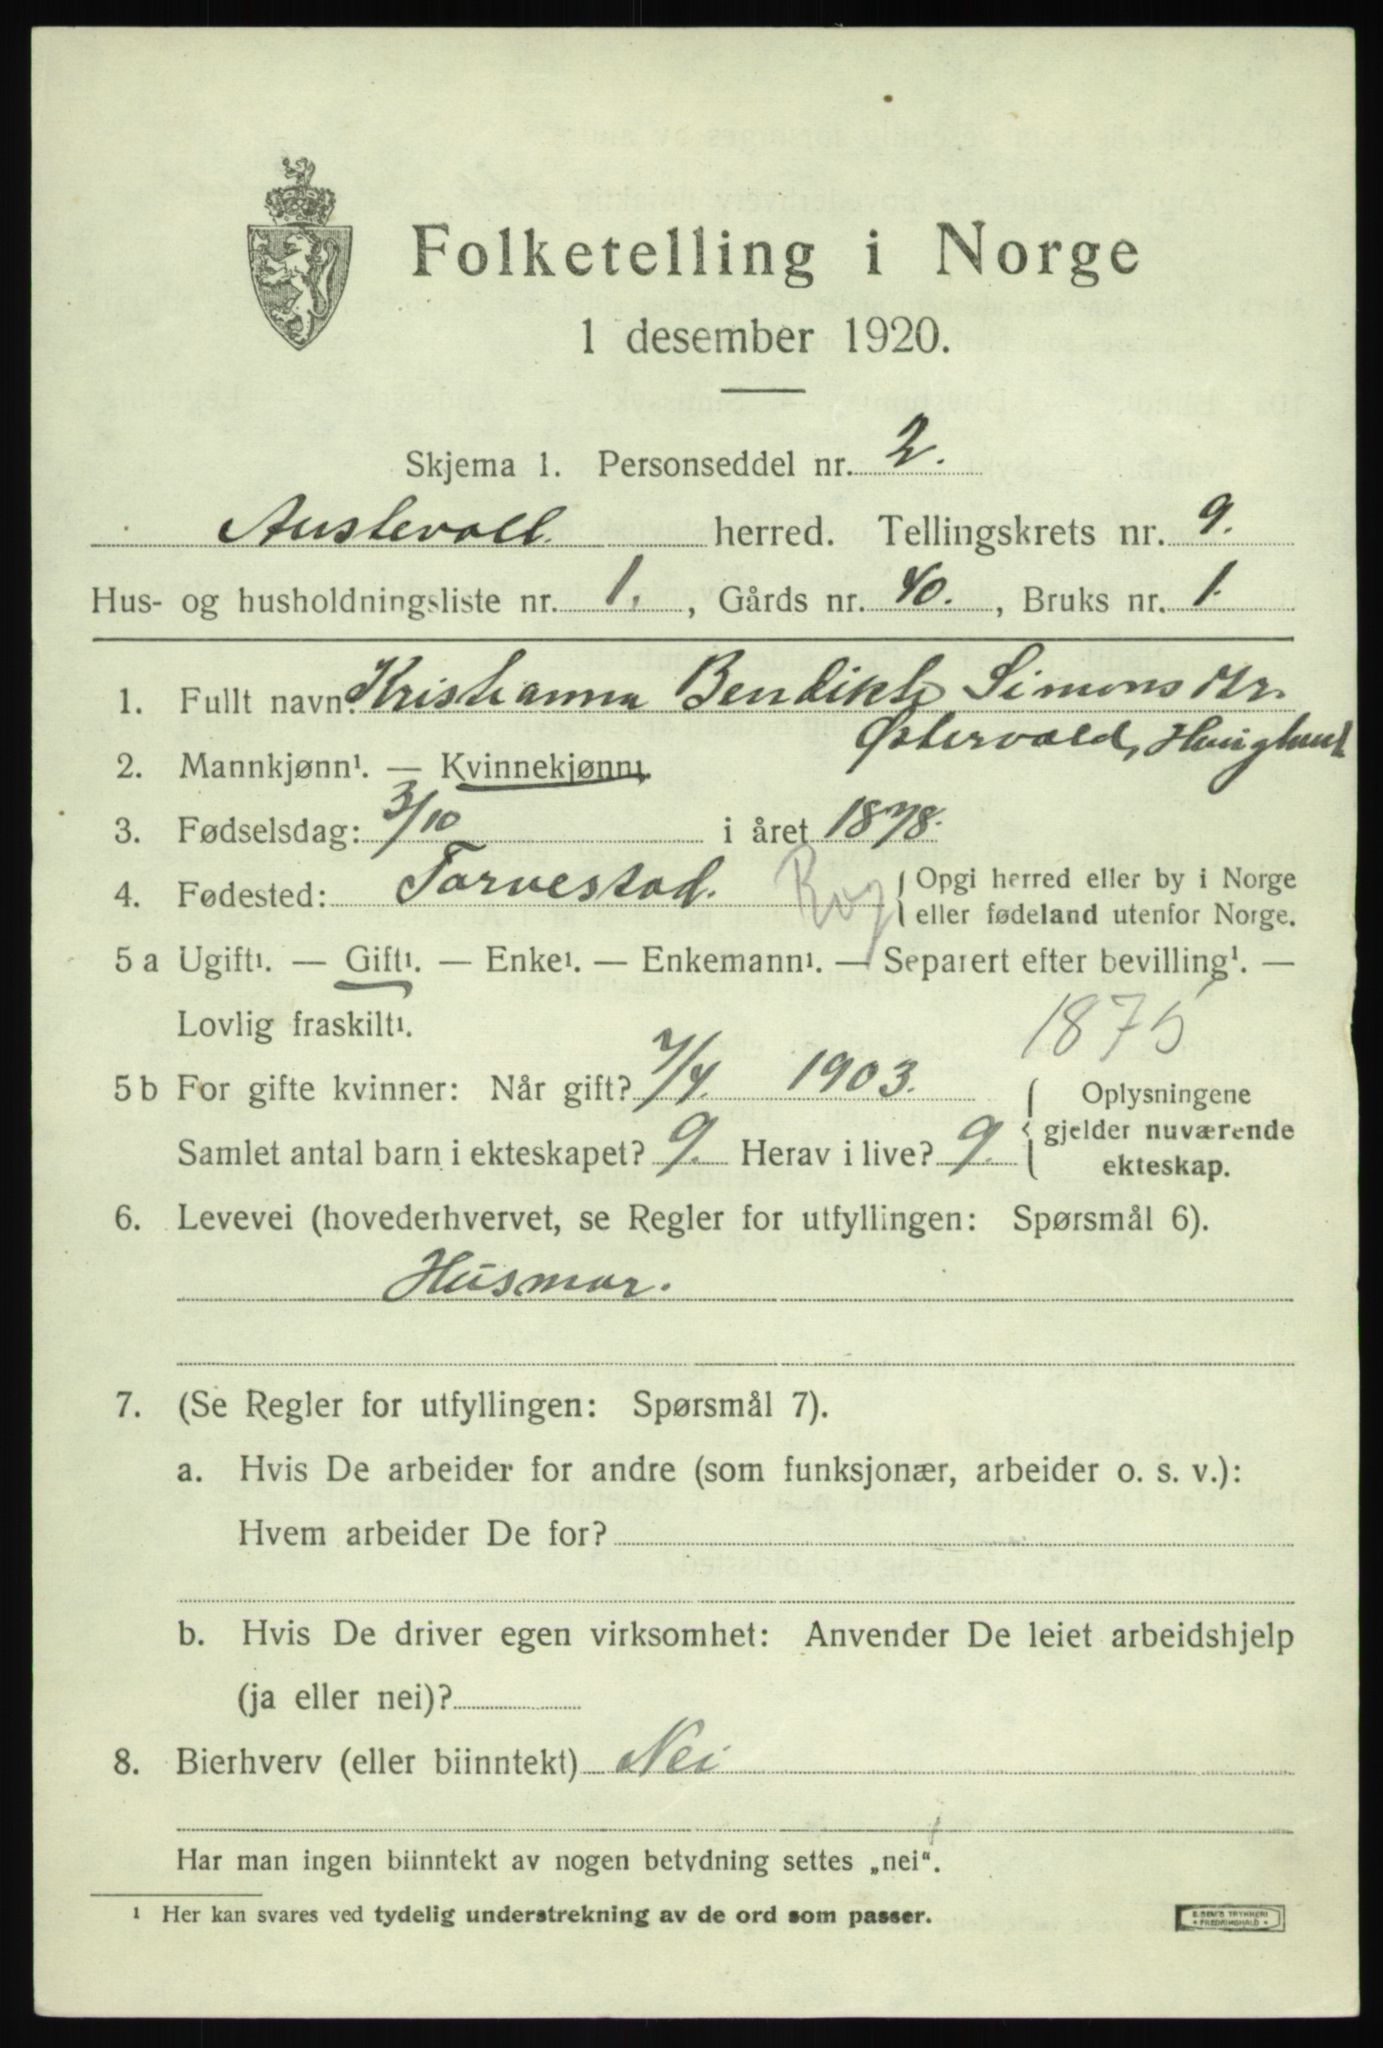 Folketelling i Norge
1 desember 1920.
Skjema 1. Personseddel nr. 2.
Austevoll. herred. Tellingskrets nr. 9.
Hus- og husholdningsliste nr. 1., Gårds nr. 40., Bruks nr. 1.
1. Fullt navn: Kristianna Bendikte Simonsdtr.
Østervold, Haugland
2. Mannkjønn¹. — Kvinnekjønn¹.
3. Fødselsdag: 3/10 i året 1878.
4. Fødested: Torvestad. Rog { Opgi herred eller by i Norge
eller fødeland utenfor Norge.
5 a Ugift¹. — Gift¹. — Enke¹. — Enkemann¹. — Separert efter bevilling¹. —
Lovlig fraskilt¹.
1875
5 b For gifte kvinner: Når gift? 7/4. 1903. { Oplysningene
Samlet antal barn i ekteskapet? 9. Herav i live? 9. gjelder nuværende
ekteskap.
6. Levevei (hovederhvervet, se Regler for utfyllingen: Spørsmål 6).
Husmor.
7. (Se Regler for utfyllingen: Spørsmål 7).
a. Hvis De arbeider for andre (som funksjonær, arbeider o. s. v.):
Hvem arbeider De for?
b. Hvis De driver egen virksomhet: Anvender De leiet arbeidshjelp
(ja eller nei)?
8. Bierhverv (eller biinntekt) Nei
Har man ingen biinntekt av nogen betydning settes „nei“.
¹ Her kan svares ved tydelig understrekning av de ord som passer.
TRYKKERI
FREDRIKSHALD